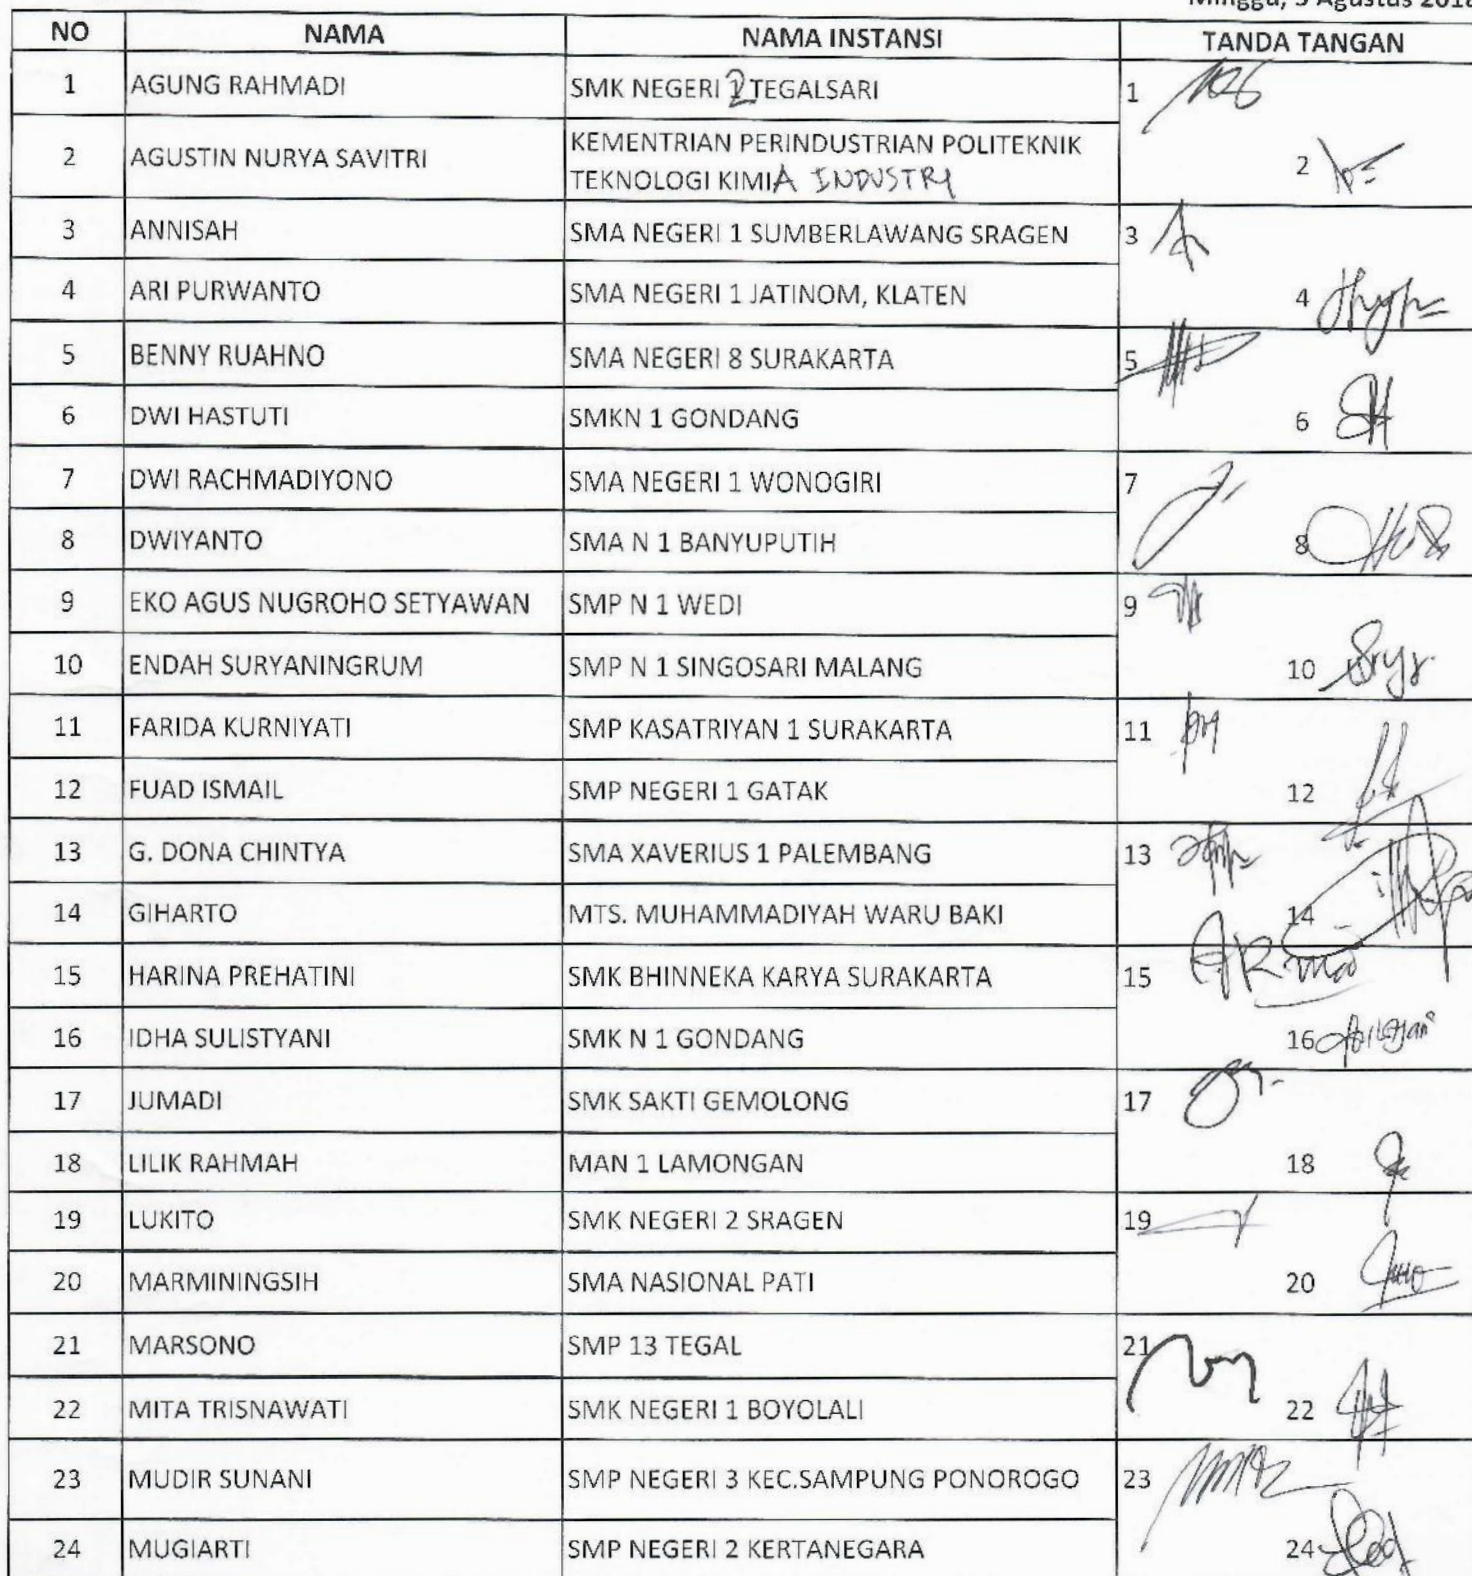 Minggu, 5 Agustus 2018
NO NAMA NAMA INSTANSI TANDA TANGAN
1 AGUNG RAHMADI SMK NEGERI 2 TEGALSARI 1
2 AGUSTIN NURYA SAVITRI KEMENTRIAN PERINDUSTRIAN POLITEKNIK
TEKNOLOGI KIMIA INDUSTRI 2
3 ANNISAH SMA NEGERI 1 SUMBERLAWANG SRAGEN 3
4 ARI PURWANTO SMA NEGERI 1 JATINOM, KLATEN 4
5 BENNY RUAHNO SMA NEGERI 8 SURAKARTA 5
6 DWI HASTUTI SMKN 1 GONDANG 6
7 DWI RACHMADIYONO SMA NEGERI 1 WONOGIRI 7
8 DWIYANTO SMA N 1 BANYUPUTIH 8
9 EKO AGUS NUGROHO SETYAWAN SMP N 1 WEDI 9
10 ENDAH SURYANINGRUM SMP N 1 SINGOSARI MALANG 10
11 FARIDA KURNIYATI SMP KASATRIYAN 1 SURAKARTA 11
12 FUAD ISMAIL SMP NEGERI 1 GATAK 12
13 G. DONA CHINTYA SMA XAVERIUS 1 PALEMBANG 13
14 GIHARTO MTS. MUHAMMADIYAH WARU BAKI 14
15 HARINA PREHATINI SMK BHINNEKA KARYA SURAKARTA 15
16 IDHA SULISTYANI SMK N 1 GONDANG 16
17 JUMADI SMK SAKTI GEMOLONG 17
18 LILIK RAHMAH MAN 1 LAMONGAN 18
19 LUKITO SMK NEGERI 2 SRAGEN 19
20 MARMININGSIH SMA NASIONAL PATI 20
21 MARSONO SMP 13 TEGAL 21
22 MITA TRISNAWATI SMK NEGERI 1 BOYOLALI 22
23 MUDIR SUNANI SMP NEGERI 3 KEC.SAMPUNG PONOROGO 23
24 MUGIARTI SMP NEGERI 2 KERTANEGARA 24